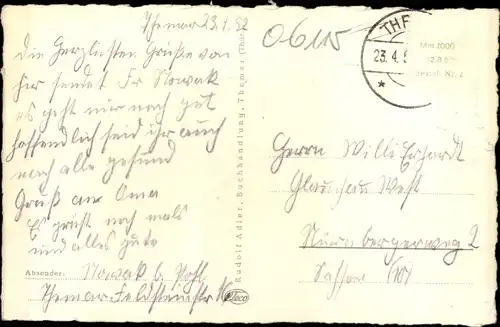 Themar 23.4.52
die herzlichsten Grüße von
hir sendet Fr Nowak
es geht mir noch gut
hoffendlich seid ihr auch
noch alle gesund
Gruß an Oma
Es grüßt noch mals
und alles gute
Absender: Nowak b. Pohl
Themar-Feldsteinstr 16
Rudolf Adler, Buchhandlung, Themar (Thür.
06110
THE
23. 4. 5
Herrn Willi Erhardt
Glauchau West
Nürnbergerweg 2
Sachsen